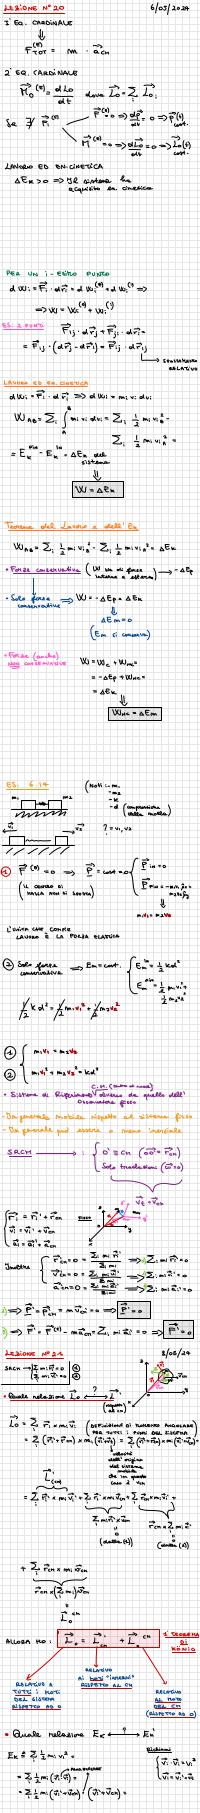 LEZIONE N°20 6/05/2024
1ª EQ. CARDINALE
F_TOT^(E) = m · a_CM
2ª EQ. CARDINALE
M_O^(E) = dL_O/dt dove L_O = Σ_i L_Oi
Se ∄ F_i^(E)
F^(E) = 0 => dP/dt = 0 => P^(t) cost.
M^(E) = 0 => dL_O/dt = 0 => L_O(t) cost.
LAVORO ED EN. CINETICA
ΔE_K > 0 => Il sistema ha
acquisito en cinetica
PER UN i-ESIMO PUNTO
dW_i = F_i · dr_i = dW_i^(E) + dW_i^(I) =>
=> W = W^(E) + W^(I)
ES: 2 PUNTI F_ij · dr_j + F_ji · dr_i =
= F_ij · (dr_j - dr_i) = F_ij · dr_ij
SPOSTAMENTO
RELATIVO
LAVORO ED EN. CINETICA
dW_i = F_i · dr_i => dW_i = m_i v_i dv_i
W_AB = Σ_i ∫_A^B m_i v_i dv_i = Σ_i ½ m_i v_iB² -
Σ_i ½ m_i v_iA² =
= E_K^fin - E_K^in = ΔE_K del
sistema
W = ΔE_K
Teorema del Lavoro e dell'E_K
W_AB = Σ_i ½ m_i v_iB² - Σ_i ½ m_i v_iA² = ΔE_K
• Forze conservative (W sia di forze interne a esterne) -> -ΔE_P
• Solo forze
conservative => W = -ΔE_P = ΔE_K
ΔE_m = 0
(E_m si conserva)
• Forze (anche)
NON CONSERVATIVE W = W_C + W_NC =
= -ΔE_P + W_NC =
= ΔE_K
W_NC = ΔE_m
ES. 6.14 (Noti: - m_1
- m_2
- K
- d (compressione
della molla)
m_1 m_2
v_1 v_2 ? = v_1, v_2
① F^(E) = 0 => P = cost = 0 { P_in = 0
(IL CENTRO DI
MASSA NON SI SPOSTA)
m_1v_1 = m_2v_2
L'UNICA CHE COMPIE
LAVORO È LA FORZA ELASTICA
② Solo forze
conservative => E_m = cost. { E_m^in = ½ k d²
E_m^fin = ½ m_1v_1² +
½ m_2v_2²
½ k d² = ½ m_1v_1² + ½ m_2v_2²
① { m_1v_1 = m_2v_2
② { m_1v_1² + m_2v_2² = k d²
C.M. (centro di massa)
• Sistema di Riferimento diverso da quello dell'
Osservatore fisso
- In generale mobile rispetto al sistema fisso
- In generale può essere o meno inerziale
SRCM => 1: { O' ≡ CM (OO' = r_CM)
Solo traslazioni (ω = 0)
{ r_i = r_i' + r_CM
v_i = v_i' + v_CM
a_i = a_i' + a_CM
FISSO
Inoltre { r'_CM = 0 = Σ_i m_i r_i' / Σ_i m_i => Σ_i m_i r_i' = 0
v'_CM = 0 = Σ_i m_i v_i' / Σ_i m_i => Σ_i m_i v_i' = 0
a'_CM = 0 = Σ_i m_i a_i' / Σ_i m_i => Σ_i m_i a_i' = 0
2) => P' = P'_CM = m v'_CM = 0 => P' = 0
3) => F' = F^(E) - m a_CM = Σ_i m_i a_i' = 0 => F' = 0
LEZIONE N°21 8/05/24
SRCM => { Σ m_i r_i' = 0 ①
Σ m_i v_i' = 0 ②
• Quale relazione L_O <-?-> L'
(rispetto al CM)
L_O = Σ_i r_i × m_i v_i (DEFINIZIONE DI MOMENTO ANGOLARE
PER TUTTI I PUNTI DEL SISTEMA)
= Σ_i (r_i' + r_CM) × m_i (v_i' + v_CM)
velocità
dell'origine
del sistema
mobile
che in questo
caso è v_CM
L'_CM
= Σ_i r_i' × m_i v_i' + Σ_i r_i' × m_i v_CM + Σ_i r_CM × m_i v_i' +
Σ m_i r_i' × v_CM
= 0
(dalla (1))
r_CM × Σ m_i v_i'
= 0
(dalla (2))
+ Σ_i r_CM × m_i v_CM
r_CM × (Σ m_i) v_CM
L_O^CM
ALLORA HO: L_O = L'_CM + L_O^CM 1° TEOREMA
DI
KÖNIG
RELATIVO A
TUTTI I MOTI
DEL SISTEMA
RISPETTO AD O
RELATIVO
AI MOTI "INTERNI"
RISPETTO AL CM
RELATIVO
AL MOTO
DEL CM
(RISPETTO AD O)
• Quale relazione E_K <-?-> E_K'
E_K = Σ_i ½ m_i v_i² =
= Σ_i ½ m_i (v_i · v_i) =
= Σ_i ½ m_i (v_i' + v_CM) · (v_i' + v_CM) =
{ v_i · v_i = v_i²
v_i = v_i' + v_CM